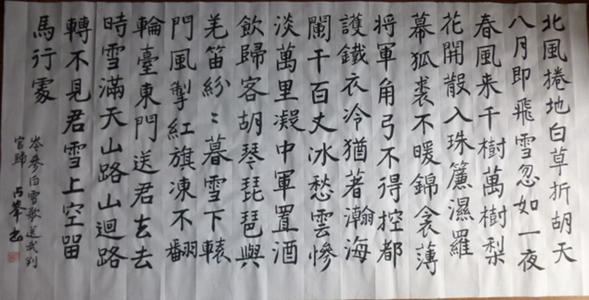 北風捲地白草折胡天
八月即飛雪忽如一夜
春風来千樹萬樹梨
花開散入珠簾濕羅
幕狐裘不暖錦衾薄
将軍角弓不得控都
護鐵衣冷猶著瀚海
闌干百丈冰愁雲慘
淡萬里凝中軍置酒
飲歸客胡琴琵琶與
羌笛紛〻暮雪下轅
門風掣紅旗凍不翻
輪臺東門送君去去
時雪滿天山路山迴路
轉不見君雪上空留
馬行處
岑參白雪歌送武判
官歸